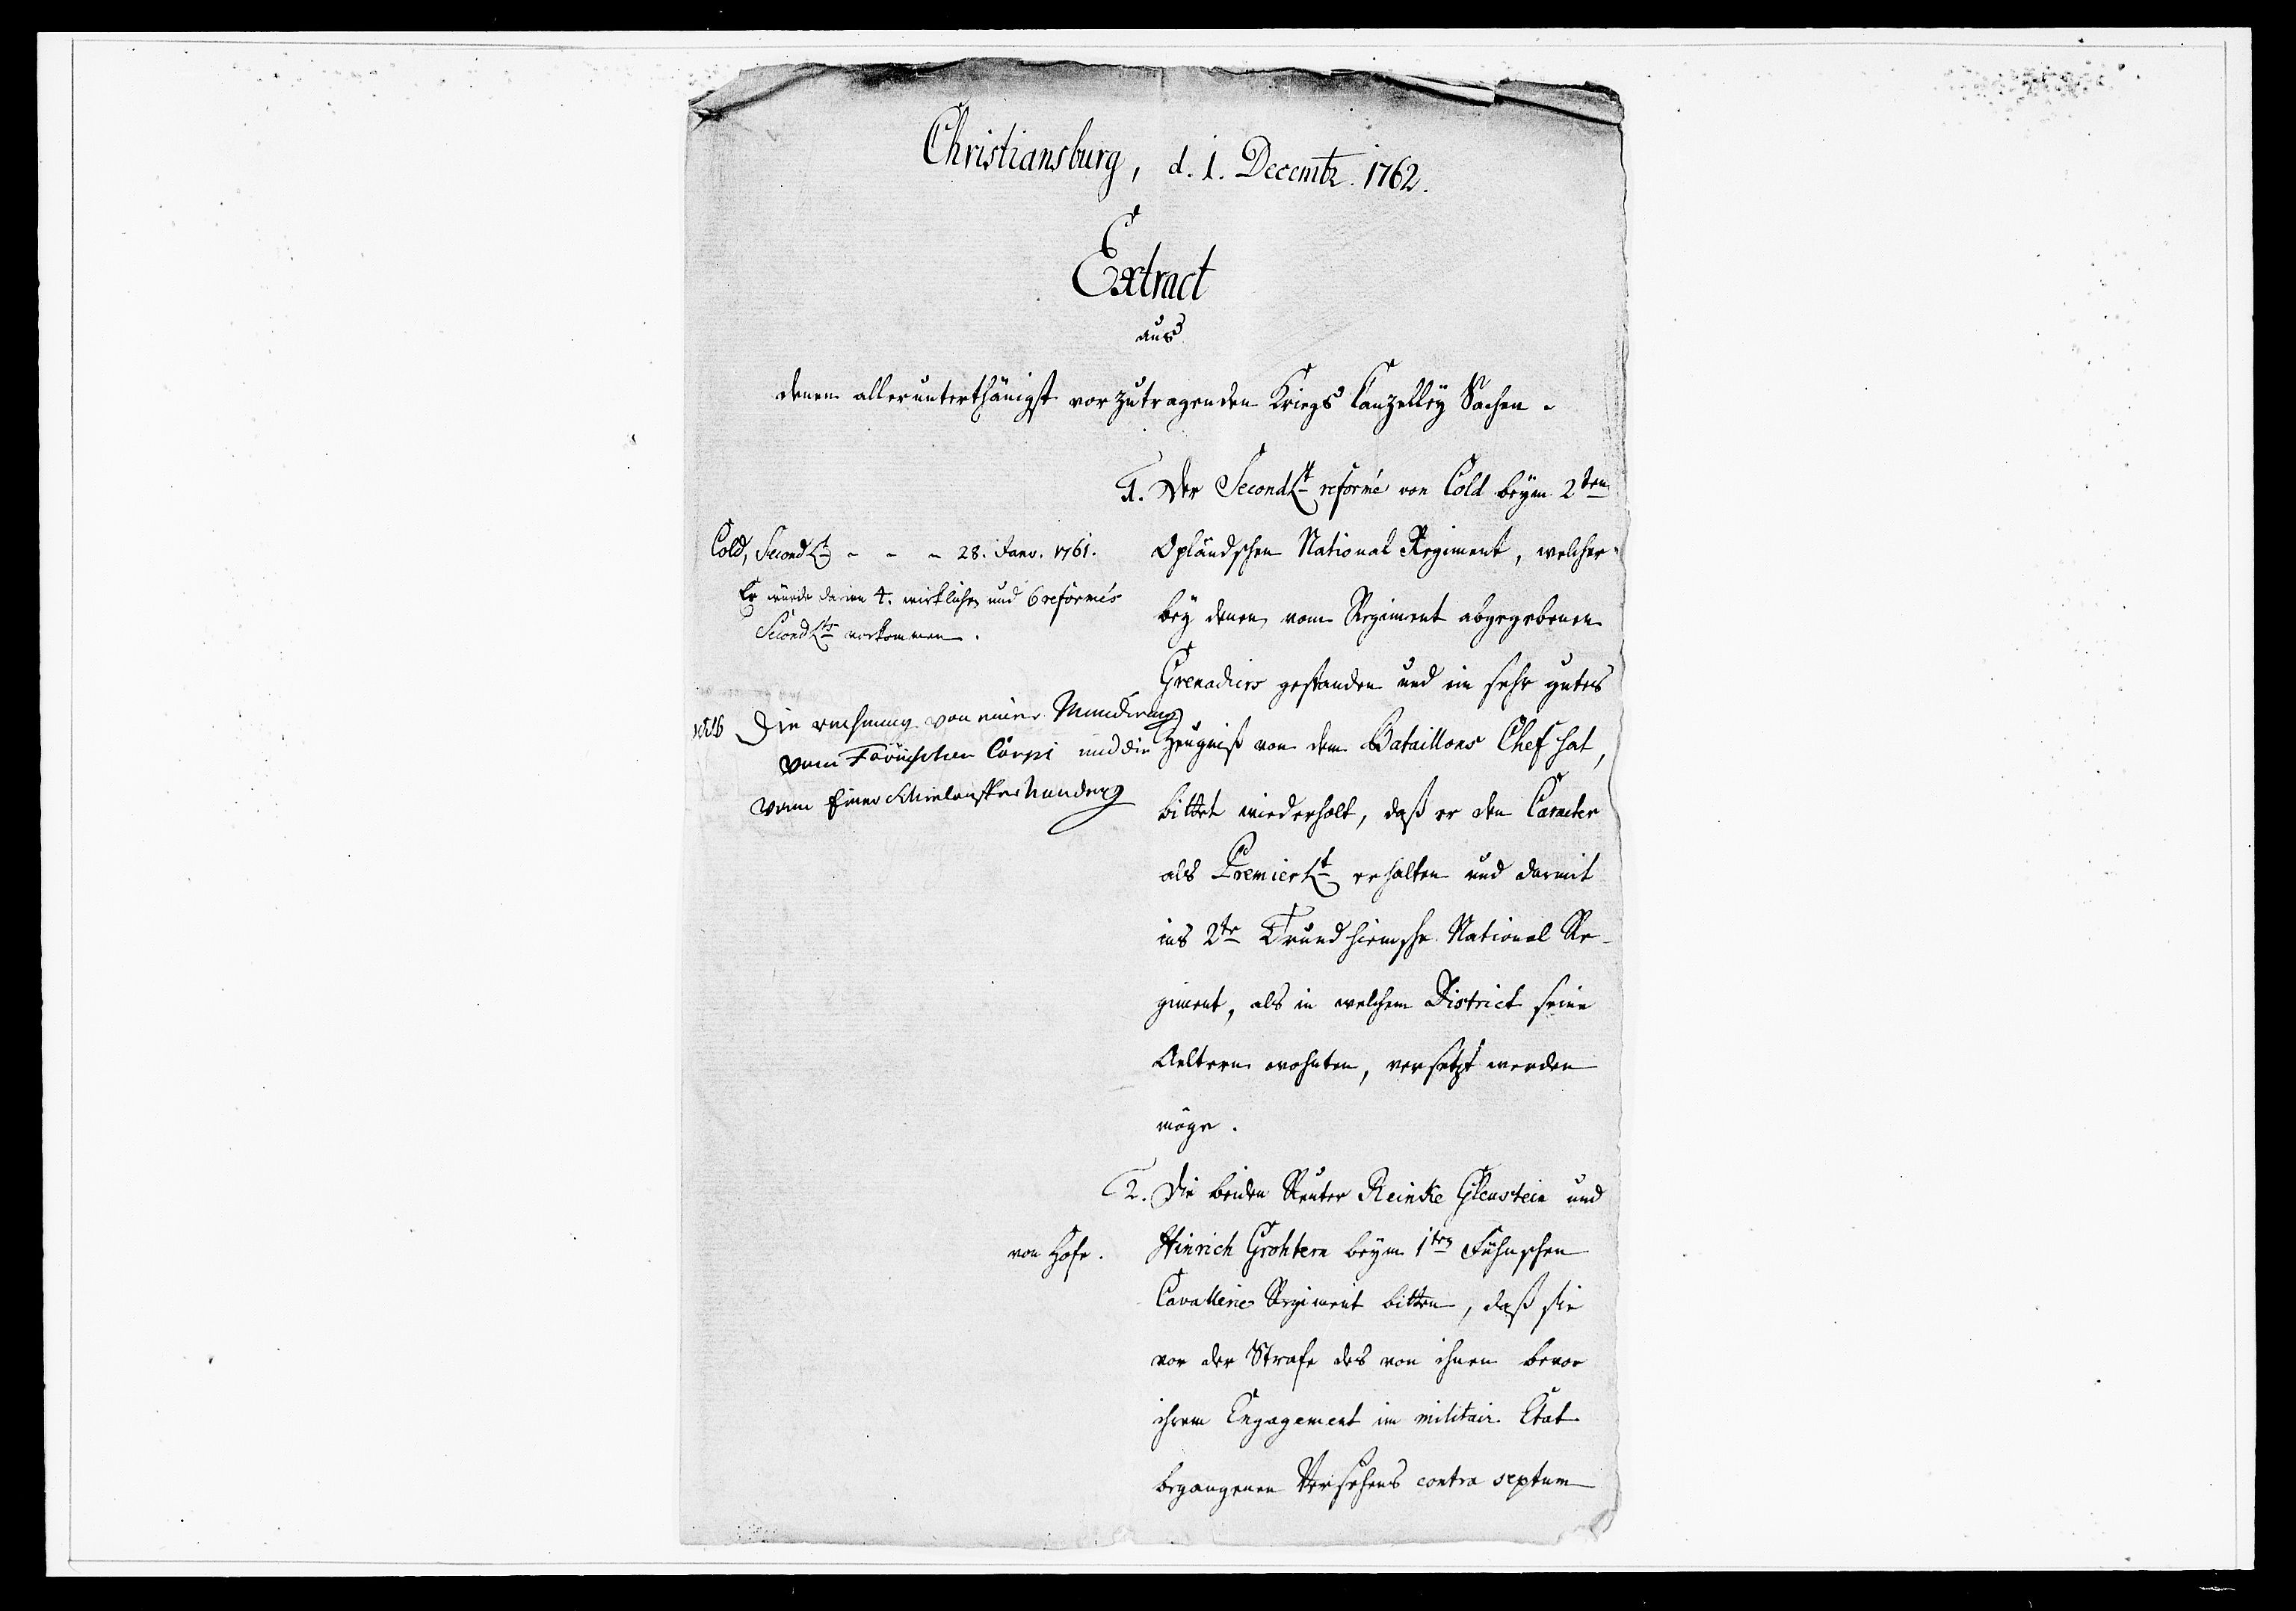 Christiansburg, d. 1. Decembr. 1762.
Extract
aus
denen allerunterthänigst vorzutragenden Kriegs Canzelley Sachen.
1. Der Second Lt reformé von Cold beym 2ten
Opländschen National Regiment, welcher
bey denen vom Regiment abgegebenen
Grenadiers gestanden und ein sehr gutes
Zeugniß von dem Bataillons Chef hat,
bittet wiederholt, daß er den Caracter
als Premier Lt erhalten und darmit
ins 2te Trundhiemsche National Re-
giment, als in welchem District seine
Aeltern wohnten, versetzt werden
möge.
Cold, Second Lt - - - 28. Janv. 1761.
Er würde darinn 4. wirkliche und 6 reformés
Second Lts vorkommen.
NB Die rechnung von einer Mundirung
vom Corps und die
vom Einer
2. Die beiden Reuter Reinke Glenstein und
Hinrich Grohtern beym 1ten Fühnschen
Cavallerie Regiment bitten, daß sie
vor der Strafe des von ihnen bevor
ihrem Engagement im militair Etat
begangenen Versehens contra septum
von Hofe.